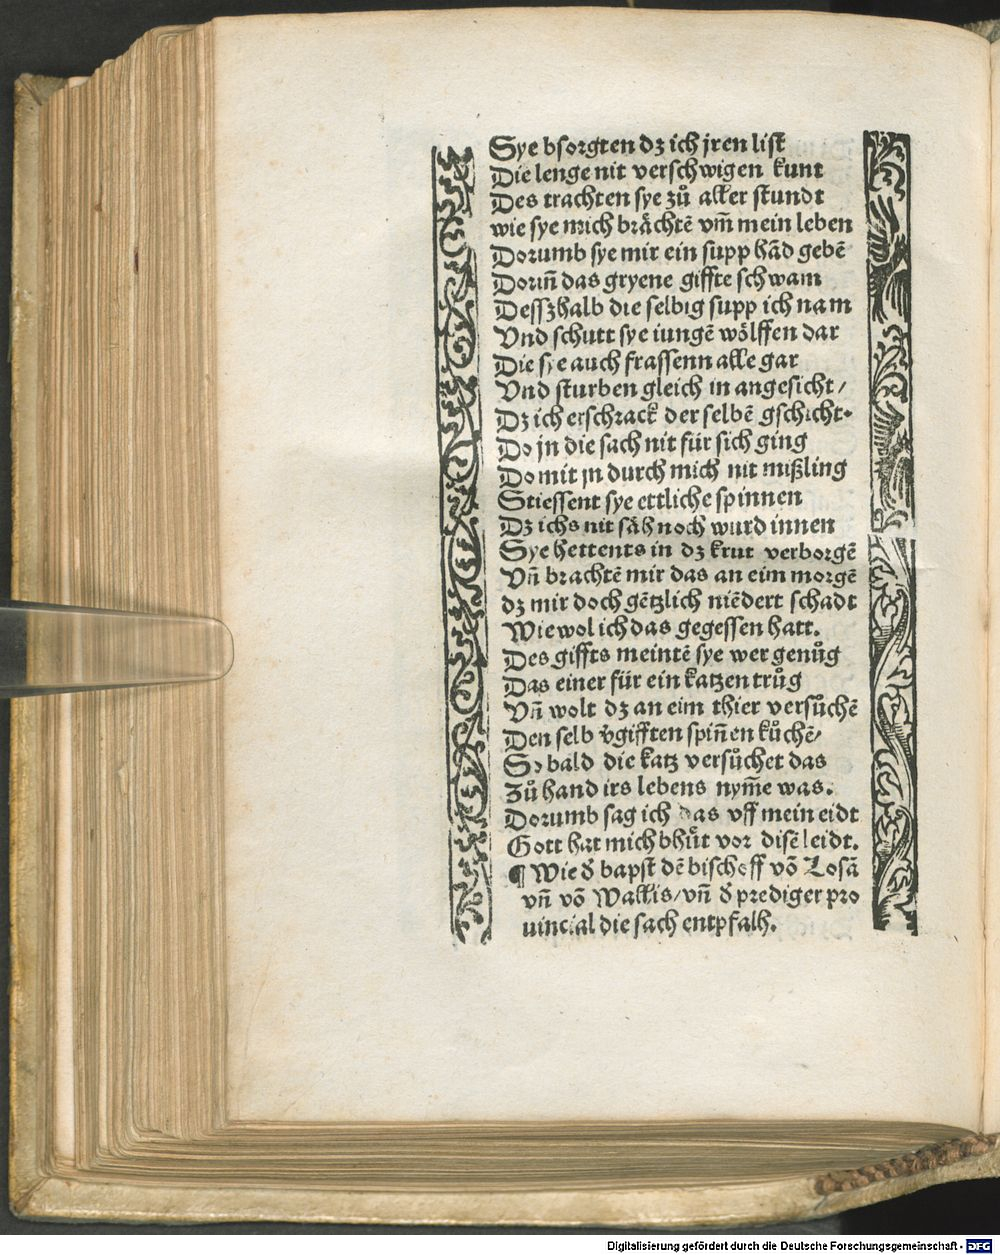 Sye bsorgten dz ich jren list
Die lenge nit verschwigen kunt
Des trachten sye zuͦ aller stundt
wie sye mich braͤchtē vm̄ mein leben
Dorumb sye mir ein supp hād gebē
Dorin̄ das gryene giffte schwam
Desszhalb die selbig supp ich nam
Vnd schutt sye iungē woͤlffen dar
Die sye auch frassenn alle gar
Vnd sturben gleich in angesicht/
Dz ich erschrack der selbē gschicht.
Do jn die sach nit für sich ging
Do mit jn durch mich nit mißling
Stiessent sye ettliche spinnen
Dz ichs nit saͤh noch wurd innen
Sye hettents in dz krut verborgē
Vn̄ brachtē mir das an eim morgē
dz mir doch gētzlich niēdert schadt
Wiewol ich das gegessen hatt.
Des giffts meintē sye wer genuͦg
Das einer für ein katzen truͦg
Vn̄ wolt dz an eim thier versuͦchē
Den selb v̄gifften spin̄en kuͦchē/
So bald die katz versuͦchet das
Zuͦ hand irs lebens nym̄e was.
Dorumb sag ich das vff mein eidt
Gott hat mich bhuͤt vor disē leidt.
¶ Wie d̄ bapst dē bischoff vō Losā
vn̄ vō Wallis/vn̄ d̄ prediger pro
uincial die sach entpfalh.
Digitalisierung gefördert durch die Deutsche Forschungsgemeinschaft - DFG